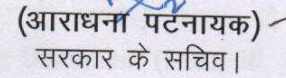 (आराधना पटनायक)
सरकार के सचिव।